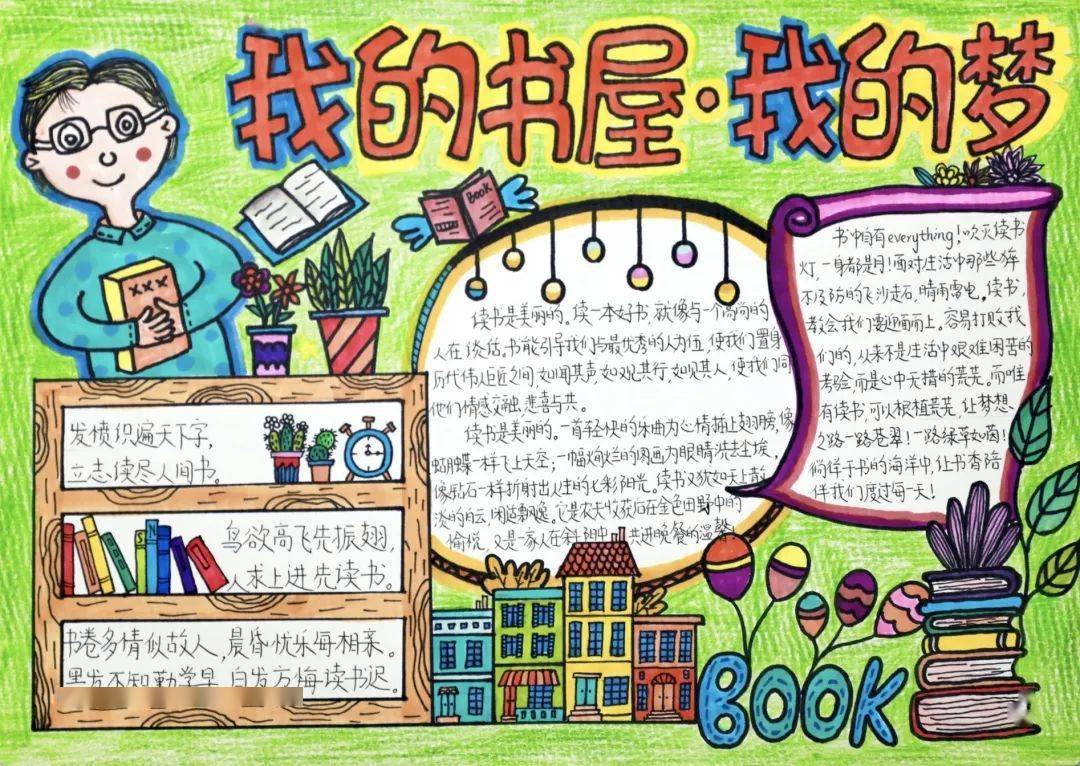 我的书屋·我的梦
BOOK
书中自有everything，吹灭读书
灯，一身都是月！面对生活中那些猝
不及防的飞沙走石，晴雨雷电。读书，
教会我们要迎面而上。容易打败我
们的，从来不是生活中艰难困苦的
考验，而是心中无措的荒芜。而唯
有读书，可以根植荒芜，让梦想
之路一路苍翠！一路绿草如茵！
徜徉于书的海洋中，让书香陪
伴我们度过每一天！
读书是美丽的。读一本好书，就像与一个高尚的
人在谈话，书能引导我们与最优秀的人为伍，使我们置身
历代伟人巨匠之间，如闻其声，如观其行，如见其人，使我们同
他们情感交融，悲喜与共。
读书是美丽的。一首轻快的乐曲为心情插上翅膀，像
蝴蝶一样飞上天空；一幅灿烂的图画为眼睛洗去尘埃，
像钻石一样折射出人生的七彩阳光。读书又犹如天上散
淡的白云，闲适飘逸。它是农夫收获后在金色田野中的
愉悦，又是一家人在斜阳中，共进晚餐的温馨。
XXX
发愤织遍天下字，
立志读尽人间书。
鸟欲高飞先振翅，
人求上进先读书。
书卷多情似故人，晨昏忧乐每相亲。
黑发不知勤学早，白发方悔读书迟。
BOOK